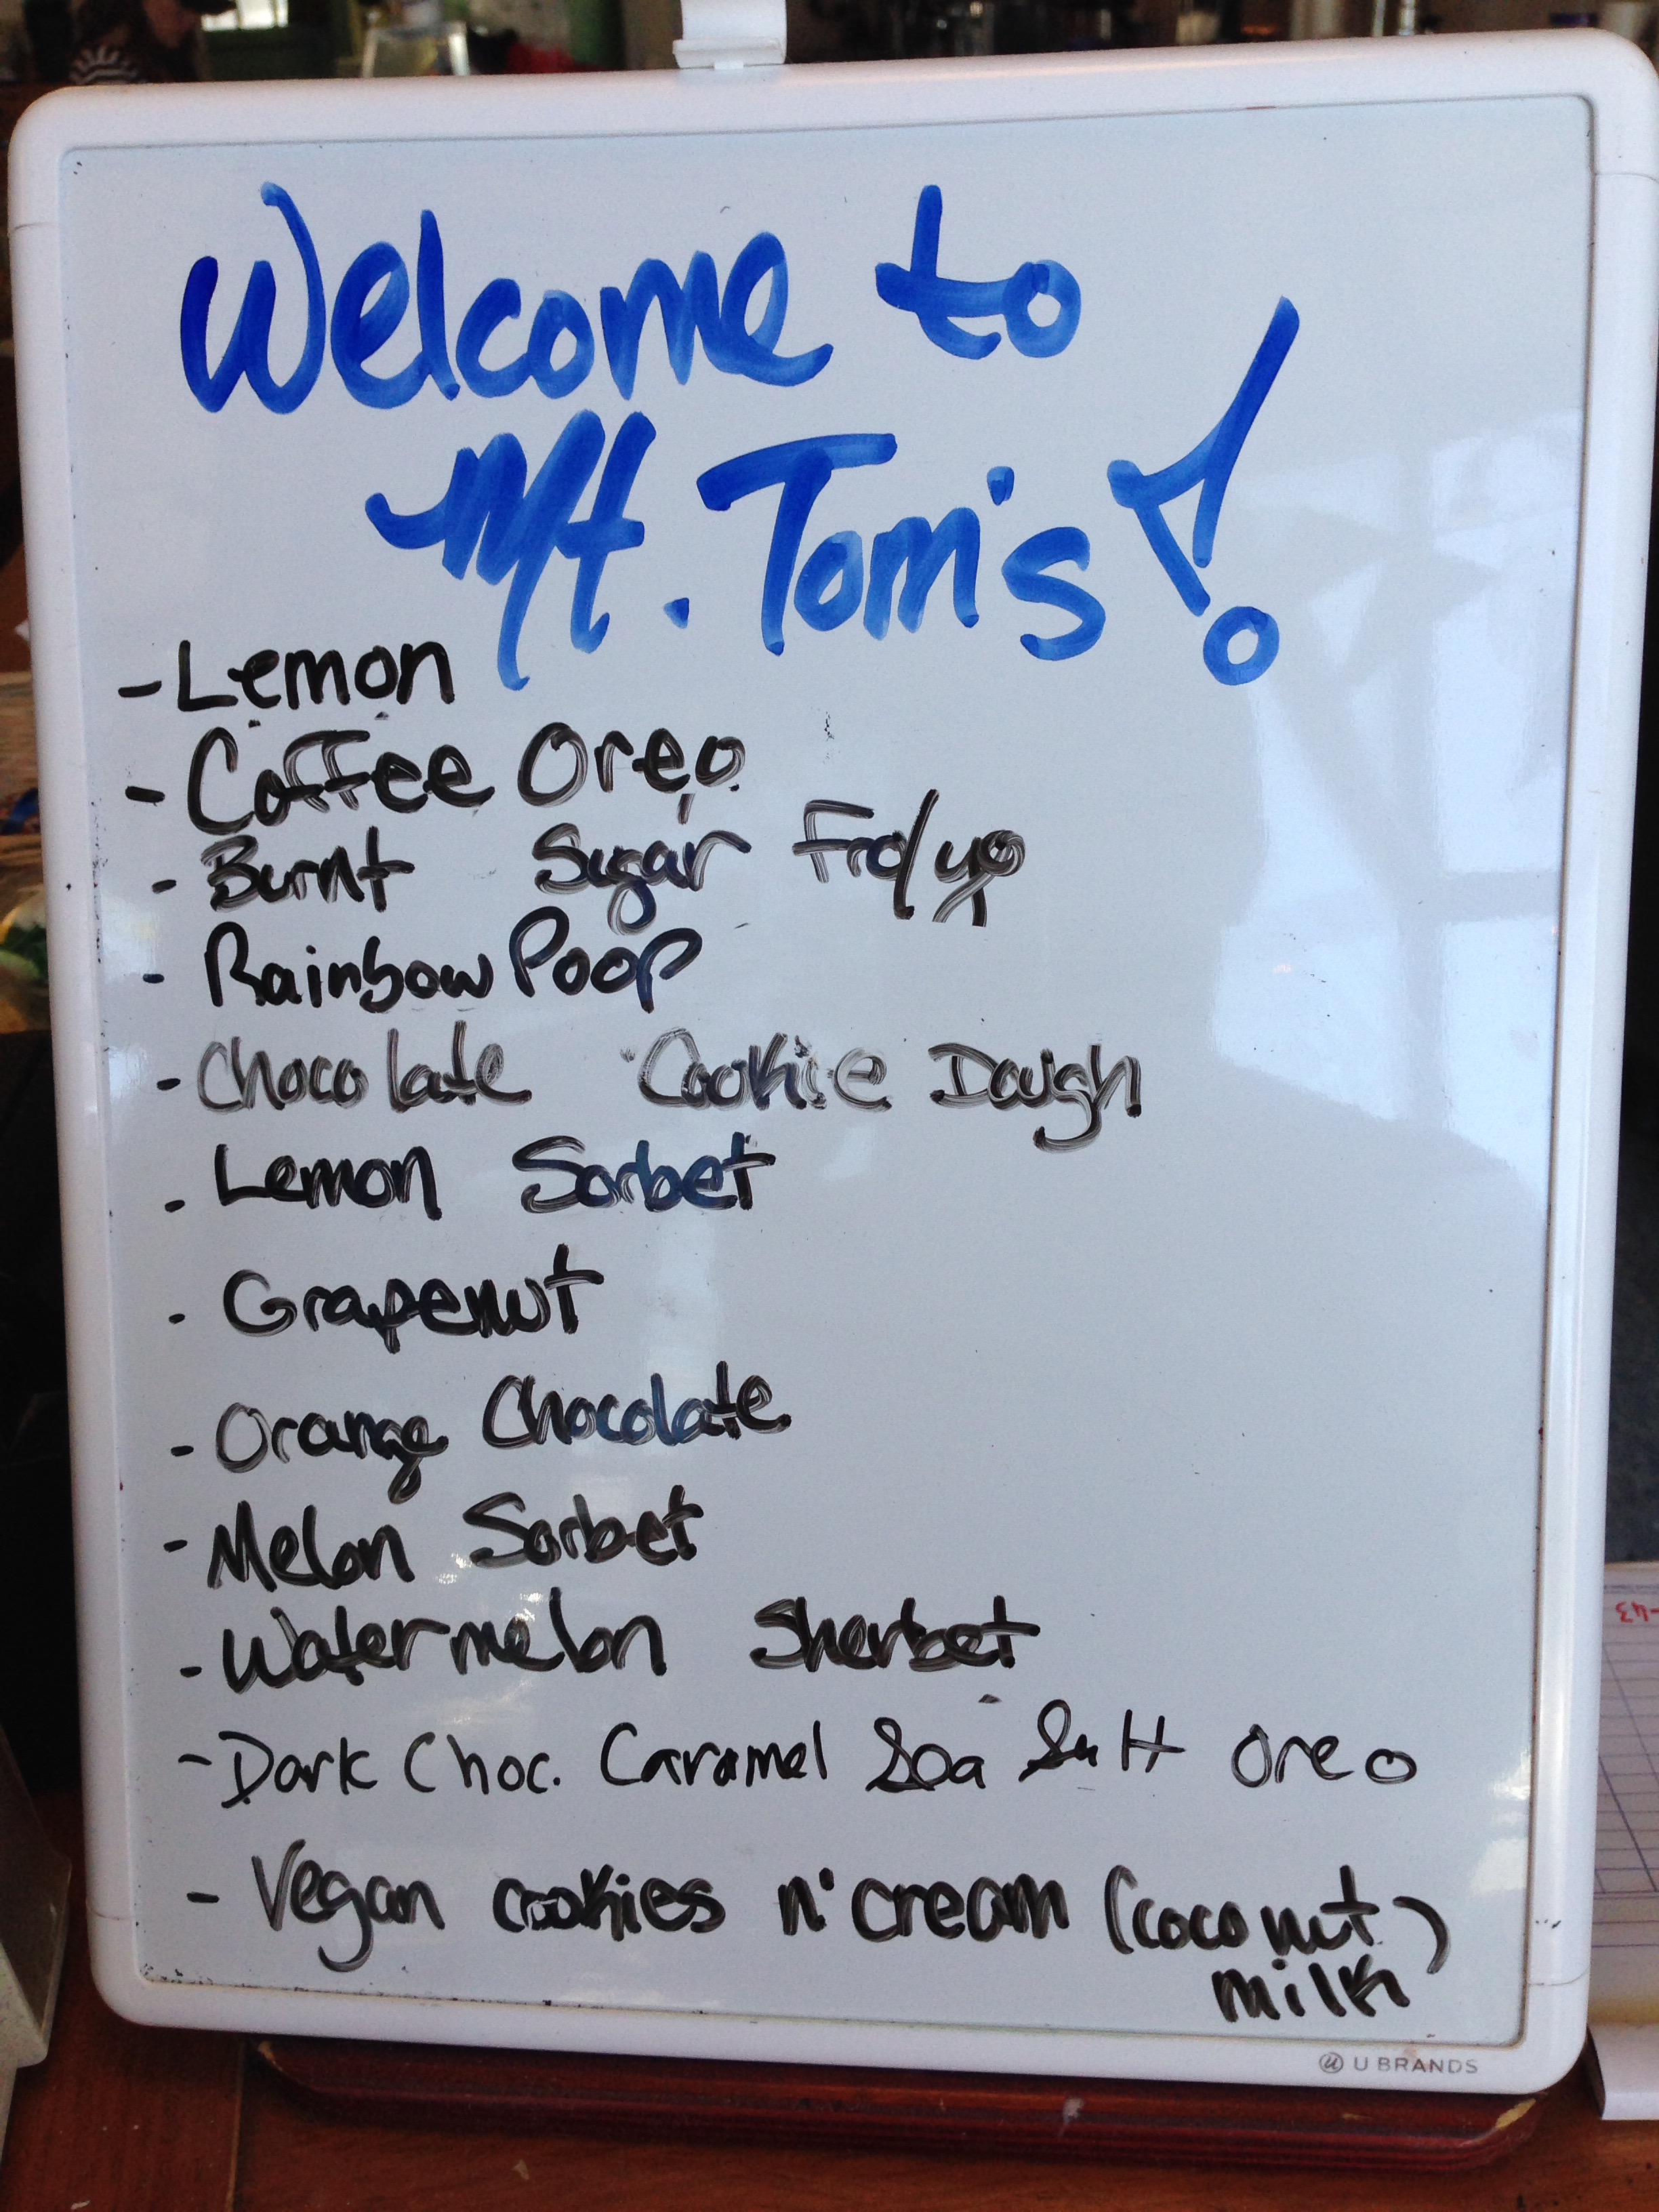 Welcome to
Mt. Tom's!
- Lemon
- Coffee Oreo
- Burnt Sugar Fro/yo
- Rainbow Poop
- Chocolate Cookie Dough
- Lemon Sorbet
- Grapenut
- Orange Chocolate
- Melon Sorbet
- Watermelon Sherbet
- Dark Choc. Caramel Sea Salt Oreo
- Vegan cookies n' cream (coconut)
milk
U BRANDS
-43